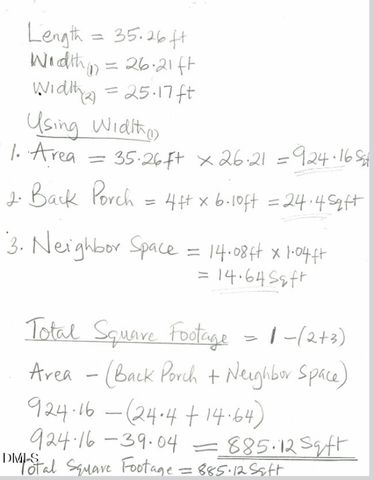 Length = 35.26ft
Width(1) = 26.21ft
Width(2) = 25.17ft
Using Width(1)
1. Area = 35.26ft × 26.21 = 924.16 Sqft
2. Back Porch = 4ft × 6.10ft = 24.4 Sqft
3. Neighbor Space = 14.08ft × 1.04ft
= 14.64 Sqft
Total Square Footage = 1 - (2+3)
Area - (Back Porch + Neighbor Space)
924.16 - (24.4 + 14.64)
924.16 - 39.04 = 885.12 Sqft
DMLS
Total Square Footage = 885.12 Sqft